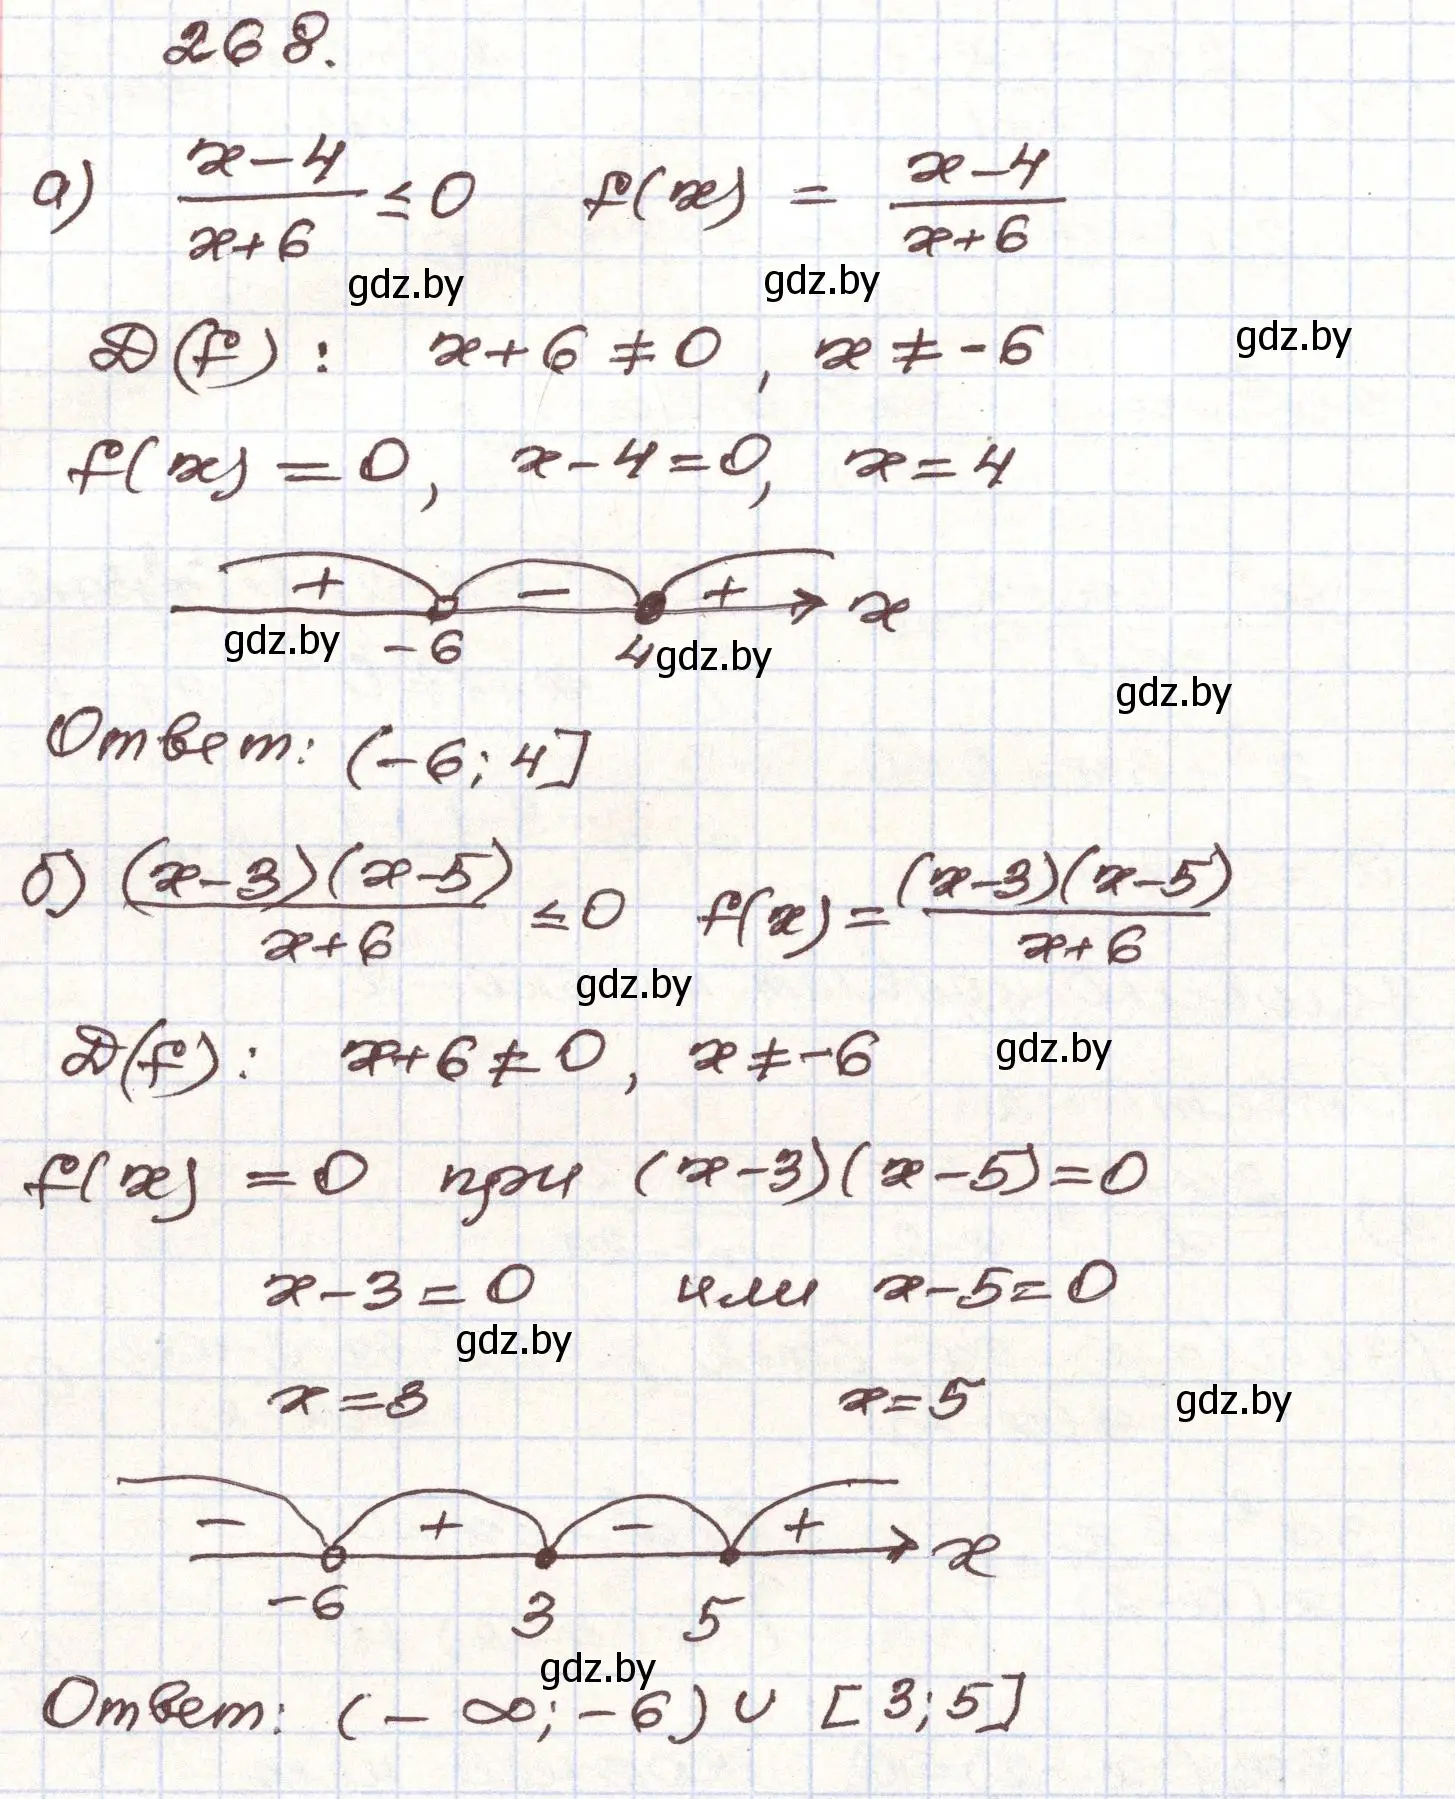 268.
а) (x-4)/(x+6) ≤ 0 f(x) = (x-4)/(x+6)
gdz.by gdz.by
D(f): x+6≠0, x≠-6 gdz.by
f(x)=0, x-4=0, x=4
+ - + x
gdz.by -6 4 gdz.by
gdz.by
Ответ: (-6; 4]
б) ((x-3)(x-5))/(x+6) ≤ 0 f(x) = ((x-3)(x-5))/(x+6)
gdz.by
D(f): x+6≠0, x≠-6 gdz.by
f(x)=0 при (x-3)(x-5)=0
x-3=0 или x-5=0
gdz.by
x=3 x=5 gdz.by
- + - + x
-6 3 5
gdz.by
Ответ: (-∞; -6) ∪ [3; 5]